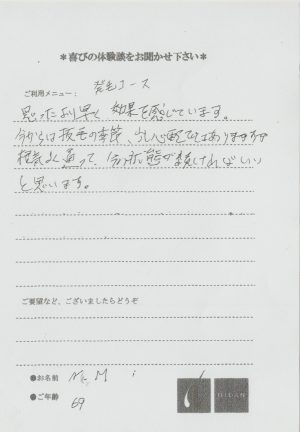 ＊喜びの体験談をお聞かせ下さい＊
ご利用メニュー： 発毛コース
思ったより早く効果を感じています。
今からは抜毛の季節、少し心配ではありますが
根気よく通って、今の状態が続ければいい
と思います。
ご要望など、ございましたらどうぞ
●お名前 M
●ご年齢 69